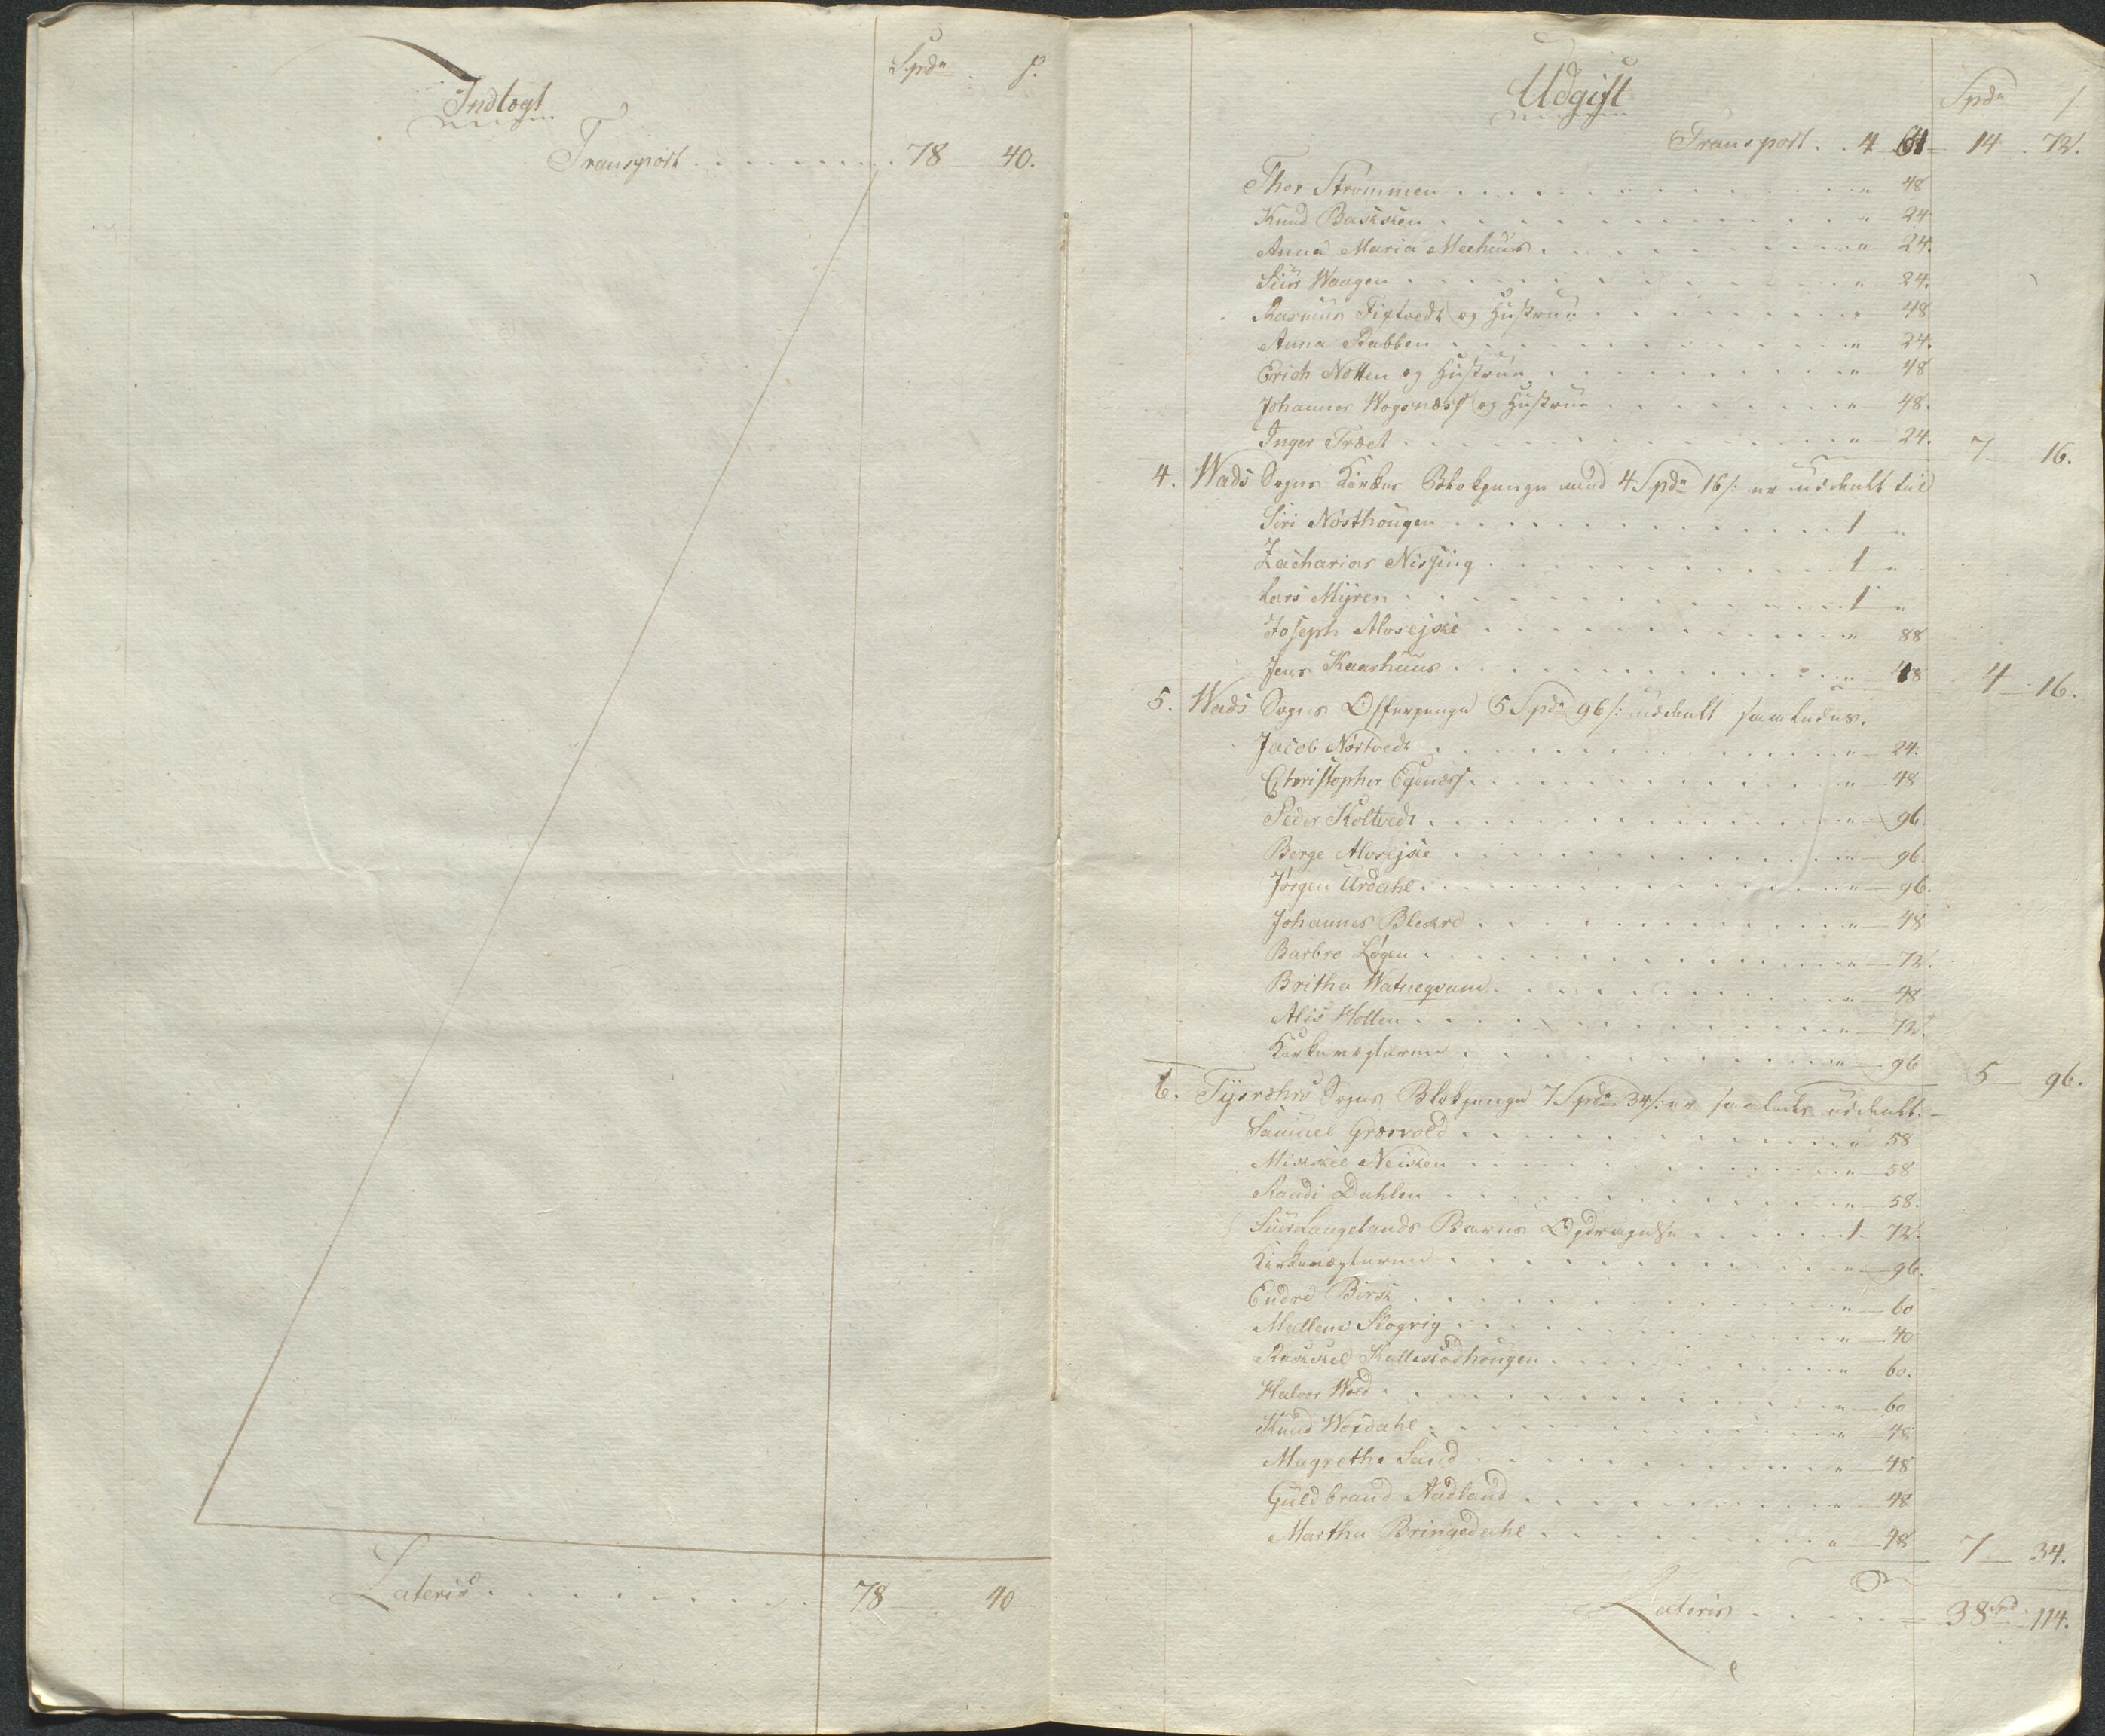 Indtægt
Spd. s.
Transport . . . . . . . . . 78 40.
Lateris . . . . . . . . . 78 — 40
Udgift
Spd. s.
Transport . . 4 64 — 14 . 72.
Thor Strømmen . . . . . . . . . " 48
Knud Backken . . . . . . . . . " 24
Anna Maria Meehuus . . . . . . . . . " 24.
Siur Waagen . . . . . . . . . " 24.
Rasmus Tiftvedt og Hustrue . . . . . . . . . " 48
Anna Rabben . . . . . . . . . " 24.
Erich Notten og Hustrue . . . . . . . . . " 48
Johannes Wogsnæss og Hustrue . . . . . . . . . " 48.
Inger Træet . . . . . . . . . " 24. 7 — 16.
4. Wads Sogns Kirkes Blokpenge med 4 Spd. 16 s: er uddeelt til
Siri Nøsthougen . . . . . . . . . 1 "
Zacharias Nissing . . . . . . . . . 1 "
Lars Myren . . . . . . . . . 1 "
Joseph Alvsejke . . . . . . . . . " 88
Jens Kaarhuus . . . . . . . . . " 48 4 — 16.
5. Wads Sogns Offerpenge 5 Spd. 96 s: uddeelt saaledes.
Jacob Nørtvedt . . . . . . . . . " 24.
Christopher Egenæss . . . . . . . . . " 48
Peder Koltvedt . . . . . . . . . " 96.
Berge Alvsejke . . . . . . . . . " 96.
Jørgen Urdahl . . . . . . . . . " 96.
Johannes Bleskre . . . . . . . . . " 48
Barbro Løgen . . . . . . . . . " 72.
Britha Watneqvam . . . . . . . . . " 48
Alis Holten . . . . . . . . . " 72.
Kirkevægteren . . . . . . . . . " 96 5 — 96.
6. Tysvæhrs Sogns Blokpenge 7 Spd. 34 s: er saaledes uddeelt. —
Samuel Græsvold . . . . . . . . . " 58
Mickel Neisken . . . . . . . . . " 58
Randi Dahlen . . . . . . . . . " 58.
Siur Langelands Barns Opdragelse . . . . . . 1. 72.
Kirkevægteren . . . . . . . . . " 96.
Endre Birk . . . . . . . . . " 60
Mallene Skogvig . . . . . . . . . " 40
Kallestadhougen . . . . . . . . . " 60.
Halvor Wold . . . . . . . . . " 60
Knud Wordahl . . . . . . . . . " 48
Magrethe Sund . . . . . . . . . " 48
Guldbrand Aadland . . . . . . . . . " 48
Martha Bringedahl . . . . . . . . . " 48 7 — 34.
Lateris . . . . . . 38 Spd. 114.